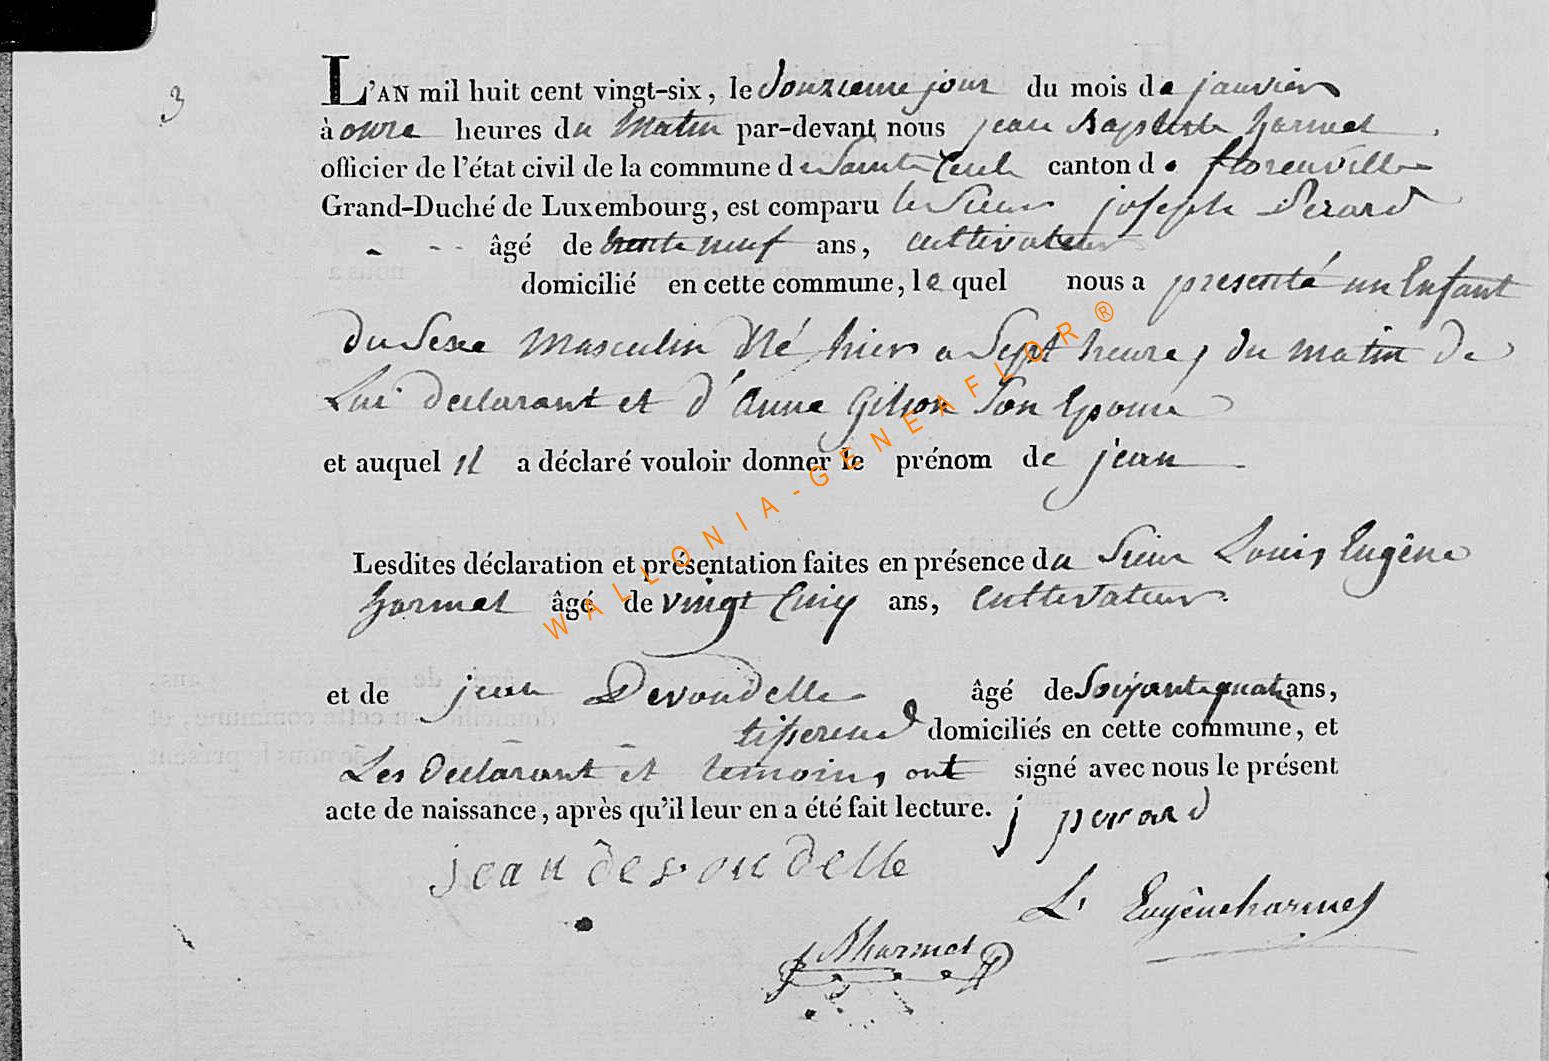 3
L'AN mil huit cent vingt-six, le Douzieme jour du mois de janvier
à onze heures du Matin par-devant nous jean Baptiste harmel
officier de l'état civil de la commune de Sainte Cecile canton de florenville
Grand-Duché de Luxembourg, est comparu le Sieur joseph Perard
âgé de trente neuf ans, cultivateur
domicilié en cette commune, le quel nous a presenté un Enfant
du Sexe Masculin Né hier a Sept heures du matin de
Lui declarant et d'Anne Gilson Son Epouse
et auquel il a déclaré vouloir donner le prénom de jean
Lesdites déclaration et présentation faites en présence du Sieur Louis Eugêne
harmel âgé de vingt Cinq ans, cultivateur
et de jean Devoudelle âgé de Soixante quatre ans,
tisserend domiciliés en cette commune, et
Les Declarant et temoins ont signé avec nous le présent
acte de naissance, après qu'il leur en a été fait lecture. j perard
jean devoudelle
L. Eugêne harmel
JB harmel
WALLONIA-GENEAFLOR®